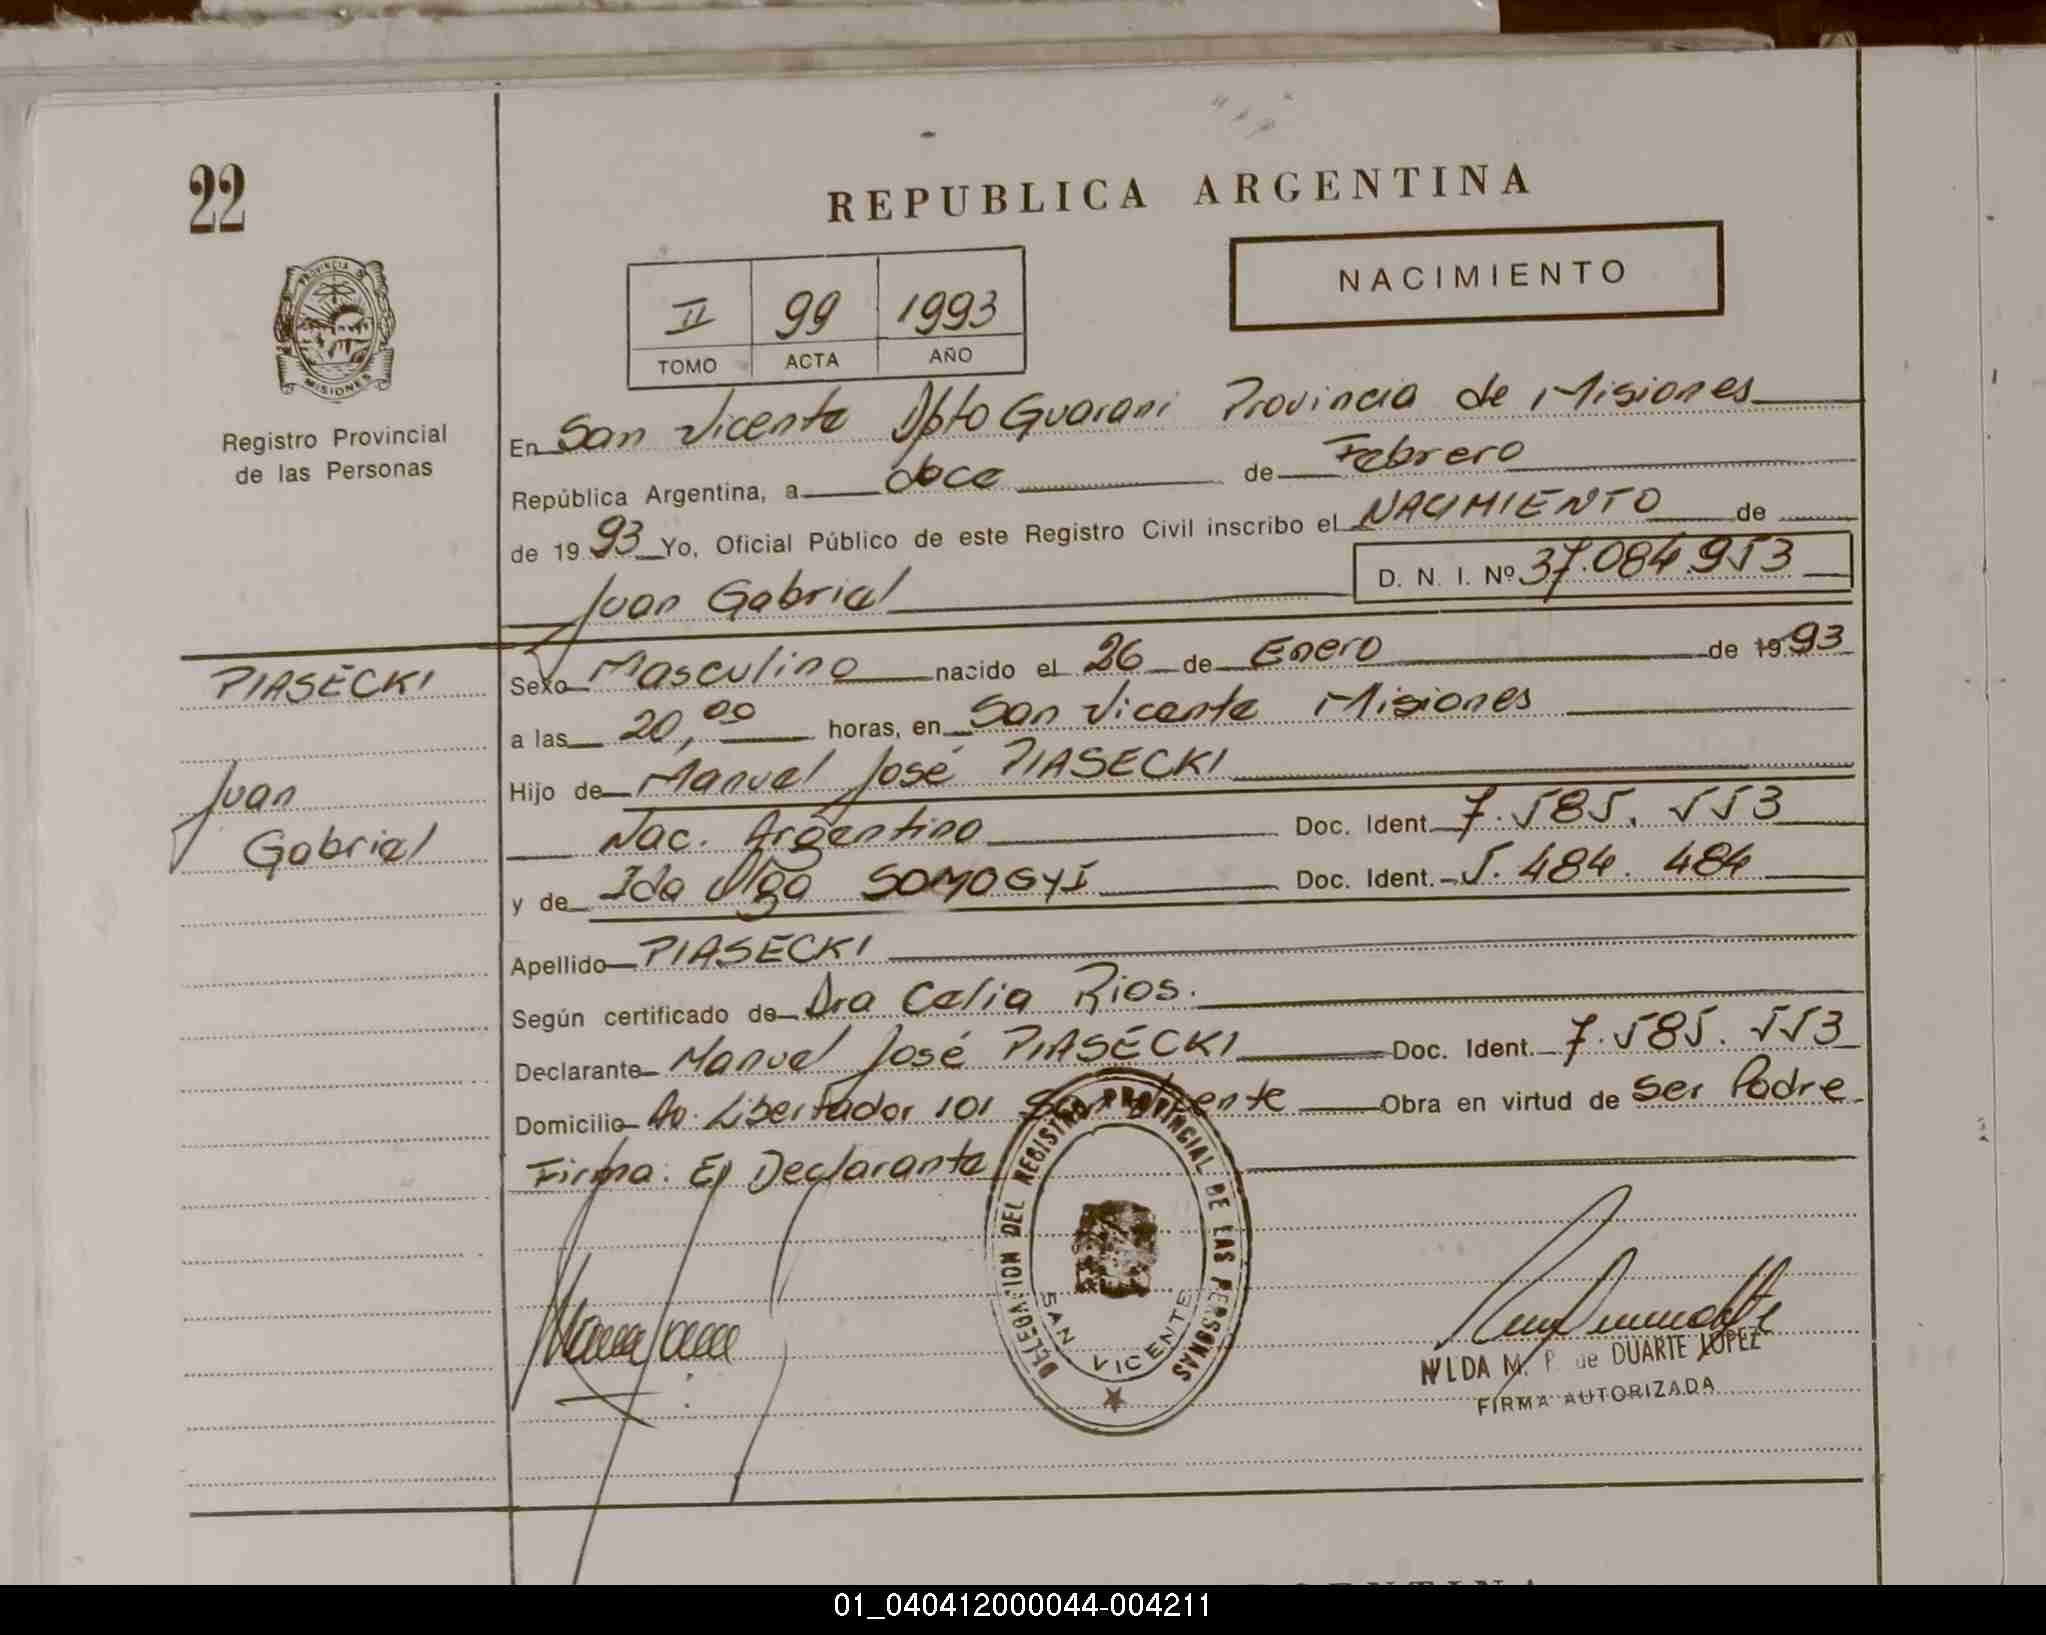 22
REPUBLICA ARGENTINA
NACIMIENTO
II 99 1993
TOMO ACTA AÑO
PROVINCIA DE MISIONES
Registro Provincial
de las Personas
En San Vicente Dpto Guarani Provincia de Misiones
República Argentina, a doce de Febrero
de 1993 Yo, Oficial Público de este Registro Civil inscribo el NACIMIENTO de
Juan Gabriel D. N. I. Nº 37.084.953
PIASECKI
Juan
Gabriel
Sexo Masculino nacido el 26 de Enero de 1993
a las 20,00 horas, en San Vicente Misiones
Hijo de Manuel José PIASECKI
Nac. Argentina Doc. Ident. 7.585.553
y de Ida Olga SOMOGYI Doc. Ident. 5.484.484
Apellido PIASECKI
Según certificado de Dra Celia Rios.
Declarante Manuel José PIASECKI Doc. Ident. 7.585.553
Domicilio Av. Libertador 101 San Vicente Obra en virtud de Ser Padre
Firma: El Declarante
DELEGACION DEL REGISTRO PROVINCIAL DE LAS PERSONAS
SAN VICENTE
NILDA M. P. de DUARTE LOPEZ
FIRMA AUTORIZADA
01_040412000044-004211